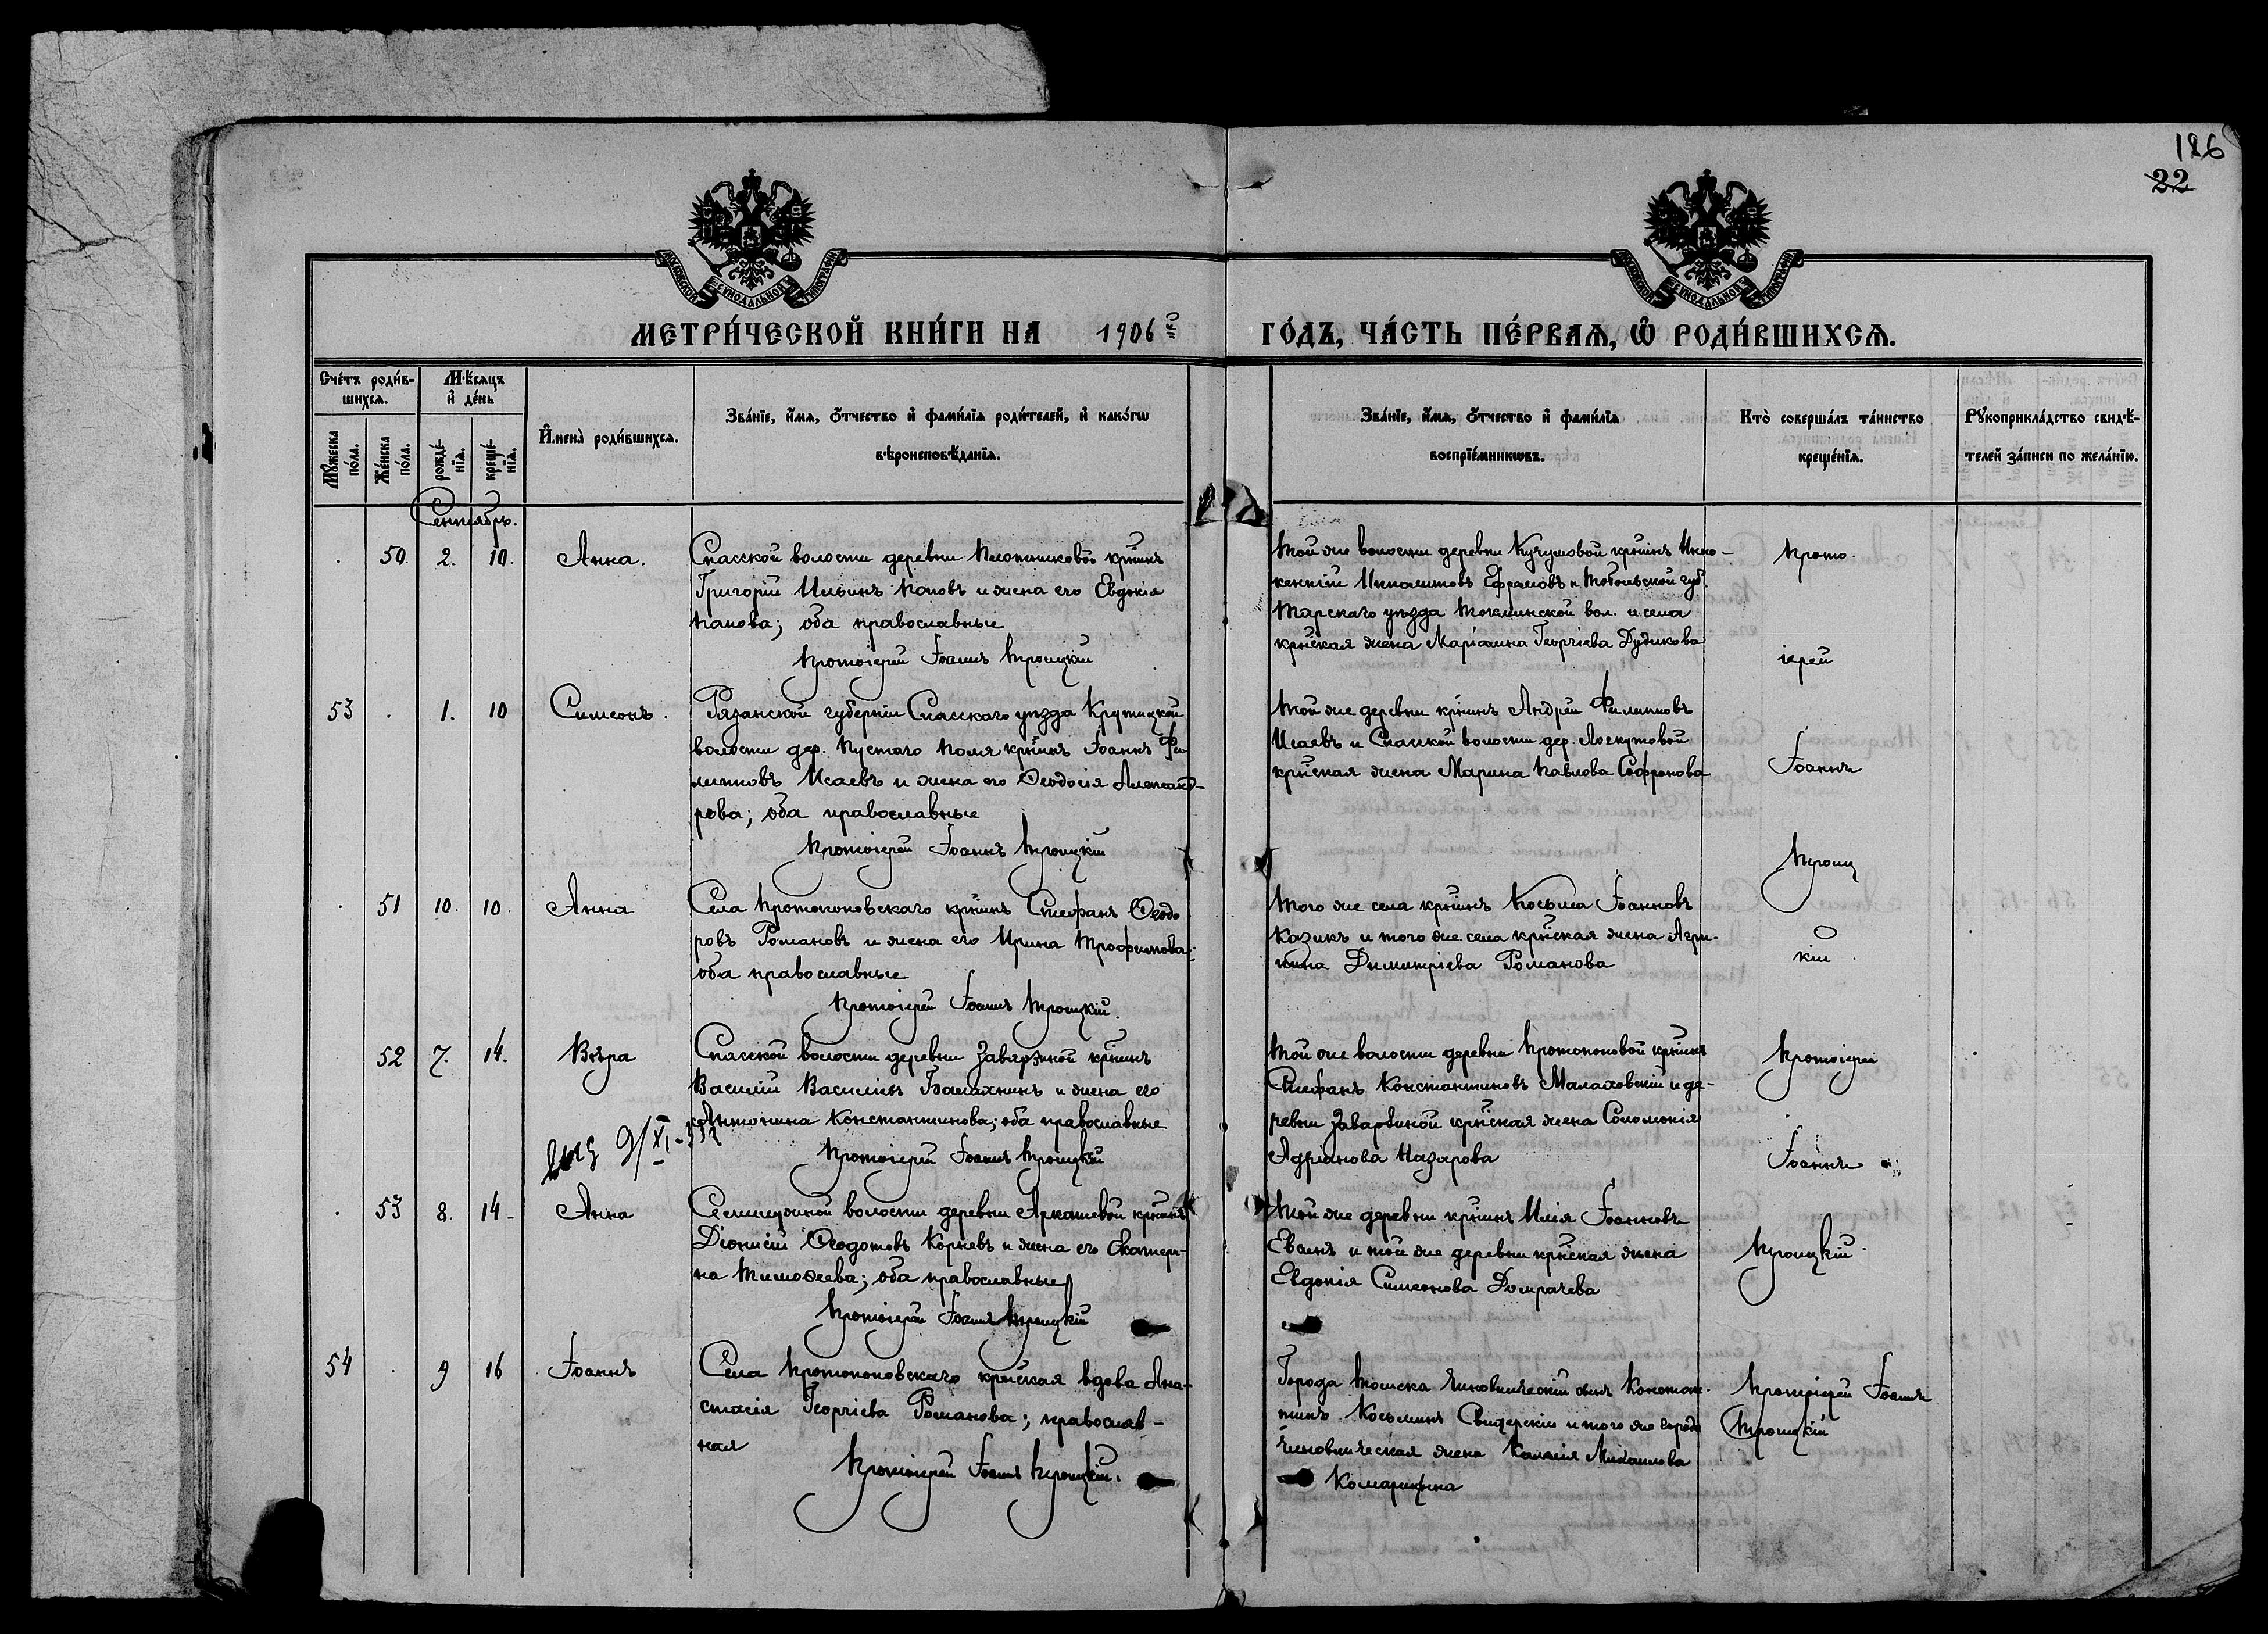 186
22
МОСКОВСКОЙ СѴНОДАЛЬНОЙ ТИПОГРАФІИ
МОСКОВСКОЙ СѴНОДАЛЬНОЙ ТИПОГРАФІИ
МЕТРИ́ЧЕСКОЙ КНИ́ГИ НА 1906й ГО́ДЪ, ЧА́СТЬ ПЕ́РВАЯ, Ѡ РОДИ́ВШИХСЯ.
Сче́тъ роди́в-
шихся.
Мꙋ́жеска по́ла.
Же́нска по́ла.
Мѣ́сяцъ
и де́нь
рожде́-
нія.
креще́-
нія.
Имена̀ роди́вшихся.
Зва́ніе, и́мя, о́тчество и фами́лія роди́телей, и како́гѡ
вѣроисповѣ́данія.
Зва́ніе, и́мя, о́тчество и фами́лія
воспріе́мникѡвъ.
Кто̀ соверша́лъ та́инство
креще́нія.
Рꙋкоприкла́дство свидѣ́-
телей за́писи по жела́нію.
Сентябрь.
50. 2. 10. Анна.
Спасской волости деревни Плотниковой кр͞нинъ
Григорій Ильинъ Паповъ и жена его Евдокія
Папова; оба православные
Протоіерей Іоаннъ Троицкій
Той же волости деревни Кучумовой кр͞нинъ Инно-
кентій Ипполитовъ Ефремовъ и Тобольской губ.
Тарскаго уѣзда Токминской вол. и села
кр͞нская жена Маріамна Георгіева Дудикова
Прото
іерей
53 1. 10 Симеонъ.
Рязанской губерніи Спасскаго уѣзда Крутицкой
волости дер. Пустаго Поля кр͞нинъ Іоаннъ Фи-
липповъ Исаевъ и жена его Ѳеодосія Александ-
рова; оба православные
Протоіерей Іоаннъ Троицкій
Той же деревни кр͞нинъ Андрей Филипповъ
Исаевъ и Спасской волости дер. Лоскутовой
кр͞нская жена Марина Павлова Софронова
Іоаннъ
Троиц
51 10. 10. Анна
Села Протопоповскаго кр͞нинъ Стефанъ Ѳеодо
ровъ Романовъ и жена его Ирина Трофимова;
оба православные
Протоіерей Іоаннъ Троицкій.
Того же села кр͞нинъ Косьма Іоанновъ
Казикъ и того же села кр͞нская жена Агри-
пина Димитріева Романова
кій
52 7. 14. Вѣра
Спасской волости деревни Заварзиной кр͞нинъ
Василій Васильевъ Балахнинъ и жена его
Антонина Константинова; оба православные
Протоіерей Іоаннъ Троицкій
9/XI-
Той же волости деревни Протопоповой кр͞нинъ
Стефанъ Константиновъ Малаховскій и де-
ревни Заварзиной кр͞нская жена Соломонія
Адріанова Назарова
Протоіерей
Іоаннъ
53 8. 14 Анна
Семилужной волости деревни Аркашевой кр͞нинъ
Діонисій Ѳеодотовъ Корневъ и жена его Екатери-
на Тимоѳеева; оба православные
Протоіерей Іоаннъ Троицкій
Той же деревни кр͞нинъ Илія Іоанновъ
Евсинъ и той же деревни кр͞нская жена
Евдокія Симеонова Домрачева
Троицкій
54 9 16 Іоаннъ
Села Протопоповскаго кр͞нская вдова Ана-
стасія Георгіева Романова; православ-
ная
Протоіерей Іоаннъ Троицкій.
Города Томска чиновническій сынъ Констан-
тинъ Косьминъ Свидерскій и того же города
чиновническая жена Михаилова
Комарицына
Протоіерей Іоаннъ
Троицкій